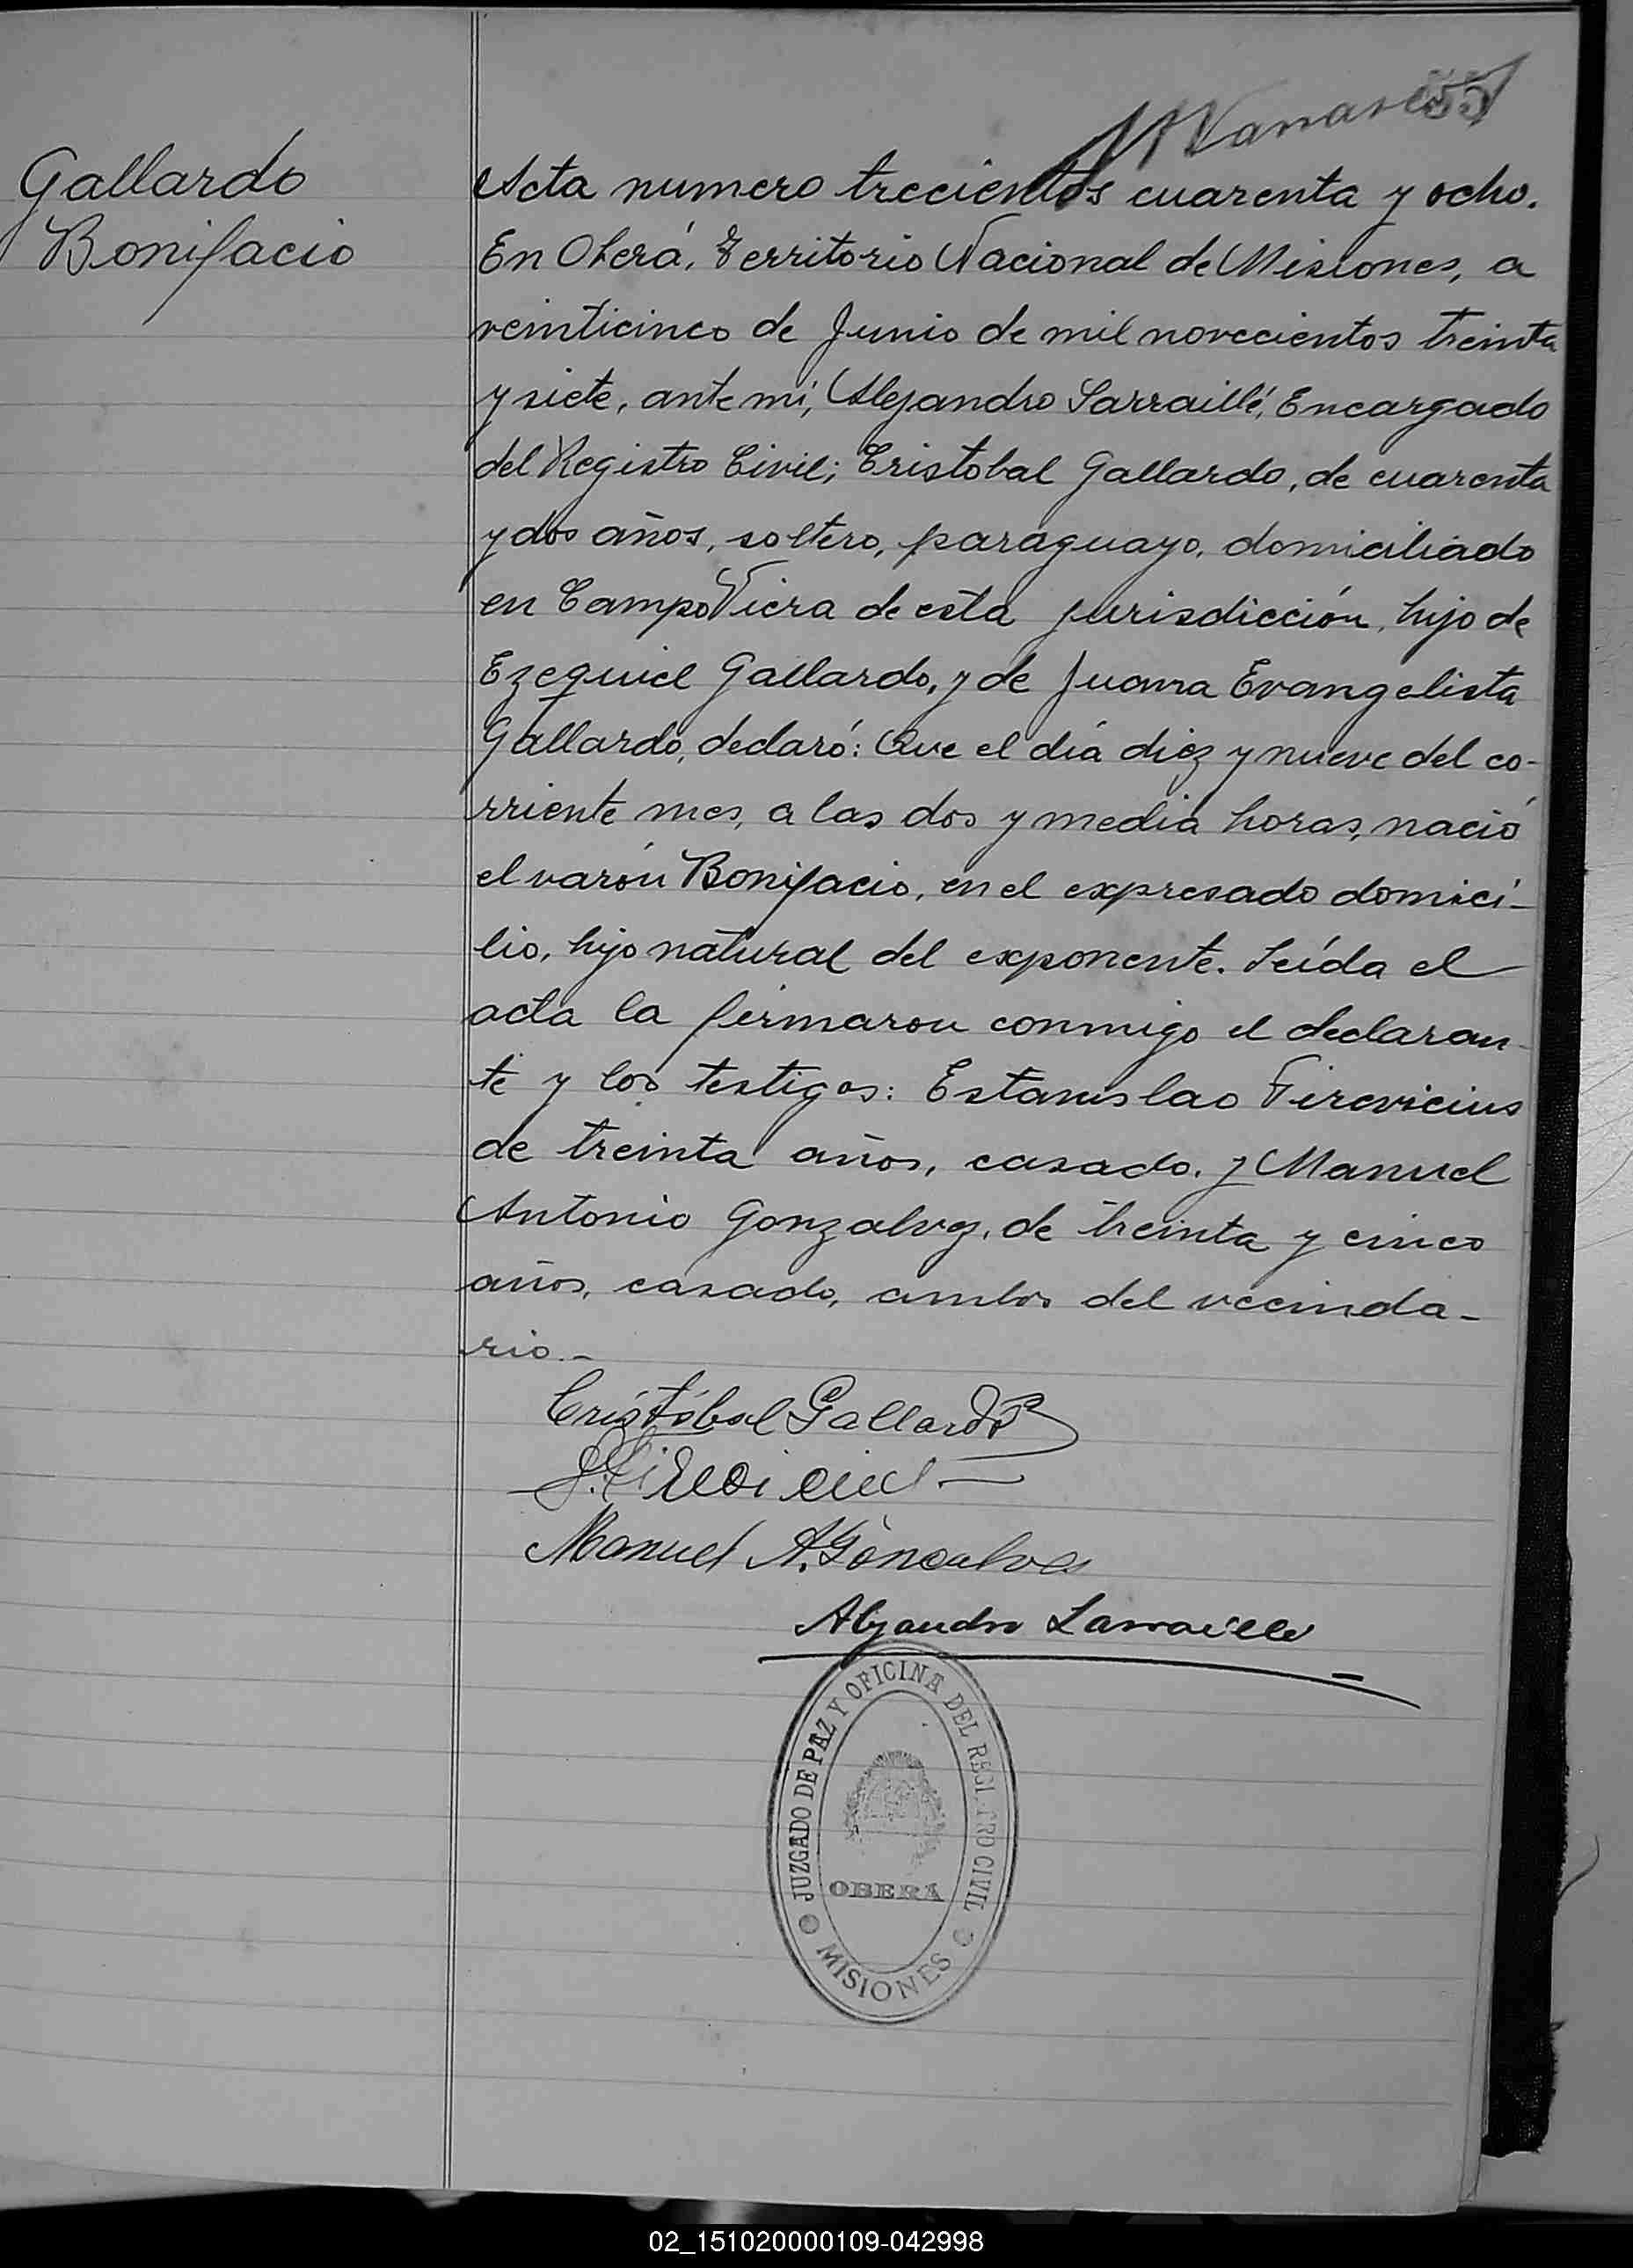 Gallardo
Bonifacio
55
Acta numero trecientos cuarenta y ocho.
En Oberá, Territorio Nacional de Misiones, a
veinticinco de Junio de mil novecientos treinta
y siete, ante mí, Alejandro Larraillé, Encargado
del Registro Civil; Cristobal Gallardo, de cuarenta
y dos años, soltero, paraguayo, domiciliado
en Campo Viera de esta jurisdicción, hijo de
Ezequiel Gallardo, y de Juana Evangelista
Gallardo, declaró: Que el día diez y nueve del co-
rriente mes, a las dos y media horas, nació
el varón Bonifacio, en el expresado domici-
lio, hijo natural del exponente. Leída el
acta la firmaron conmigo el declaran-
te y los testigos: Estanislao Firevicius
de treinta años, casado, y Manuel
Antonio Gonzalvez, de treinta y cinco
años, casado, ambos del vecinda-
rio.-
Cristóbal Gallardo
Manuel A. Goncalves
Alejandro Larraillé
JUZGADO DE PAZ Y OFICINA DEL REGISTRO CIVIL
OBERÁ
MISIONES
02_151020000109-042998